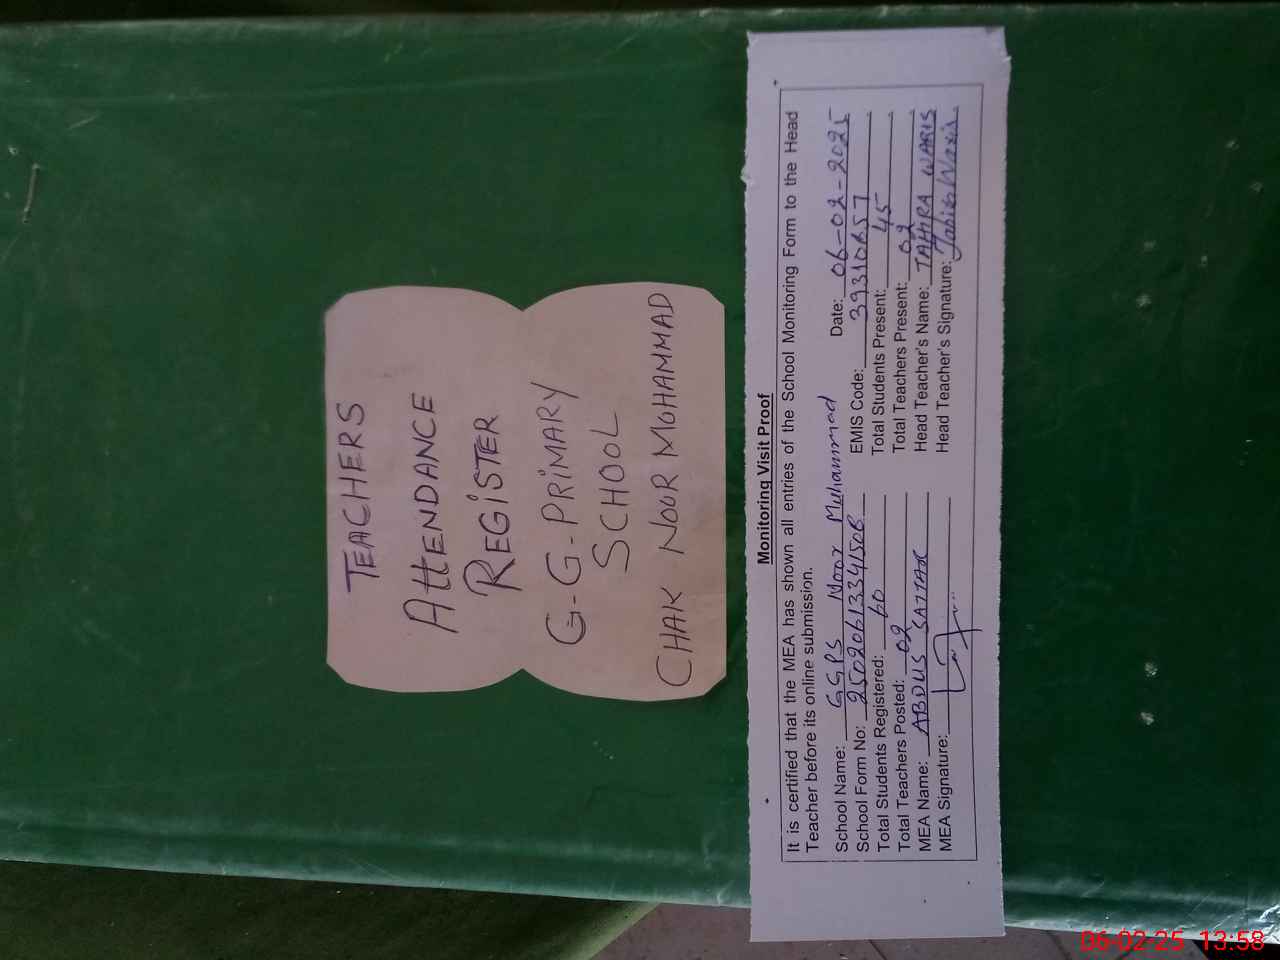 TEACHERS
AttENDANCE
REGiSTER
G-G-PRiMARY
SCHOOL
CHAK NOOR MOHAMMAD
Monitoring Visit Proof
It is certified that the MEA has shown all entries of the School Monitoring Form to the Head
Teacher before its online submission.
School Name: GGPS Noor Muhammad Date: 06-02-2025
School Form No: EMIS Code:
Total Students Registered: 60 Total Students Present: 45
Total Teachers Posted: 02 Total Teachers Present: 02
MEA Name: ABDUS SATTAR Head Teacher's Name: TAHIRA WARIS
MEA Signature: Head Teacher's Signature: Waris
06-02-25 13:58